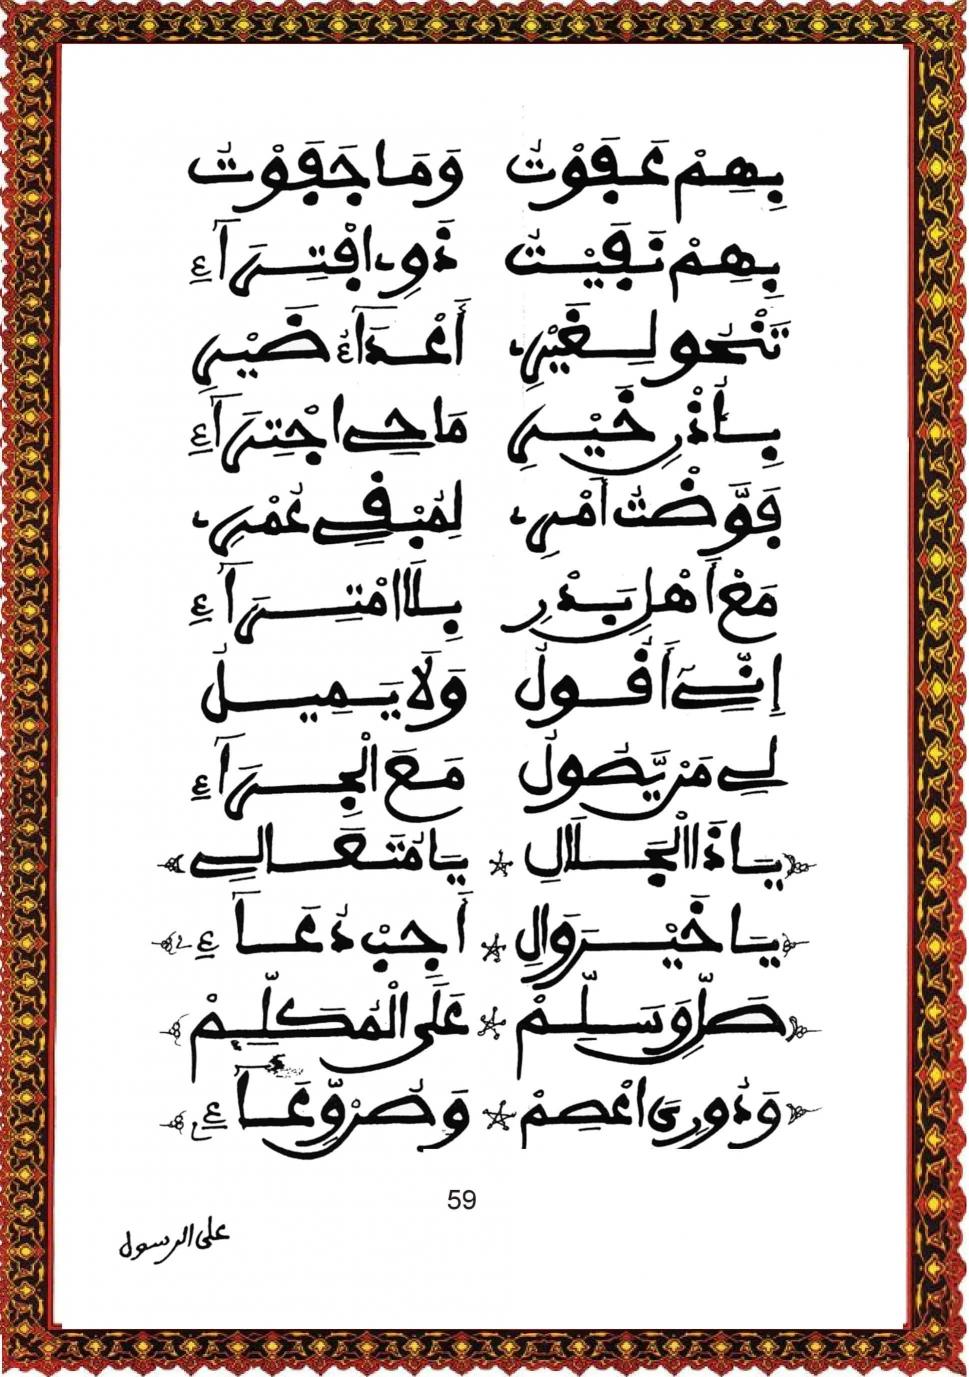 بِهِمْ عَفَوْتَ وَمَا جَفَوْتَ
بِهِمْ نَفَيْتَ ذَوِي افْتِرَاءِ
تَنْحُو لِغَيْرِي أَعْدَاءُ ضَيْرِ
خَيْرِ مَاحِي اجْتِرَاءِ
فَوَّضْتُ أَمْرِي لِمُبْقِي عُمْرِي
مَعْ أَهْلِ بَدْرِ بِلَا امْتِرَاءِ
إِنِّي أَقُولُ وَلَا يَمِيلُ
لِي مَنْ يَّصُولُ مَعَ الْجِرَاءِ
يَا ذَا الْجَلَالِ يَا مُتَعَالِي
يَا خَيْرَ وَالِ أَجِبْ دُعَاءِ
صَلِّ وَسَلِّمْ عَلَى الْمُكَلِّمْ
وَدُورِيَ اعْصِمْ وَصُنْ وِّعَاءِ
59
على الرسول